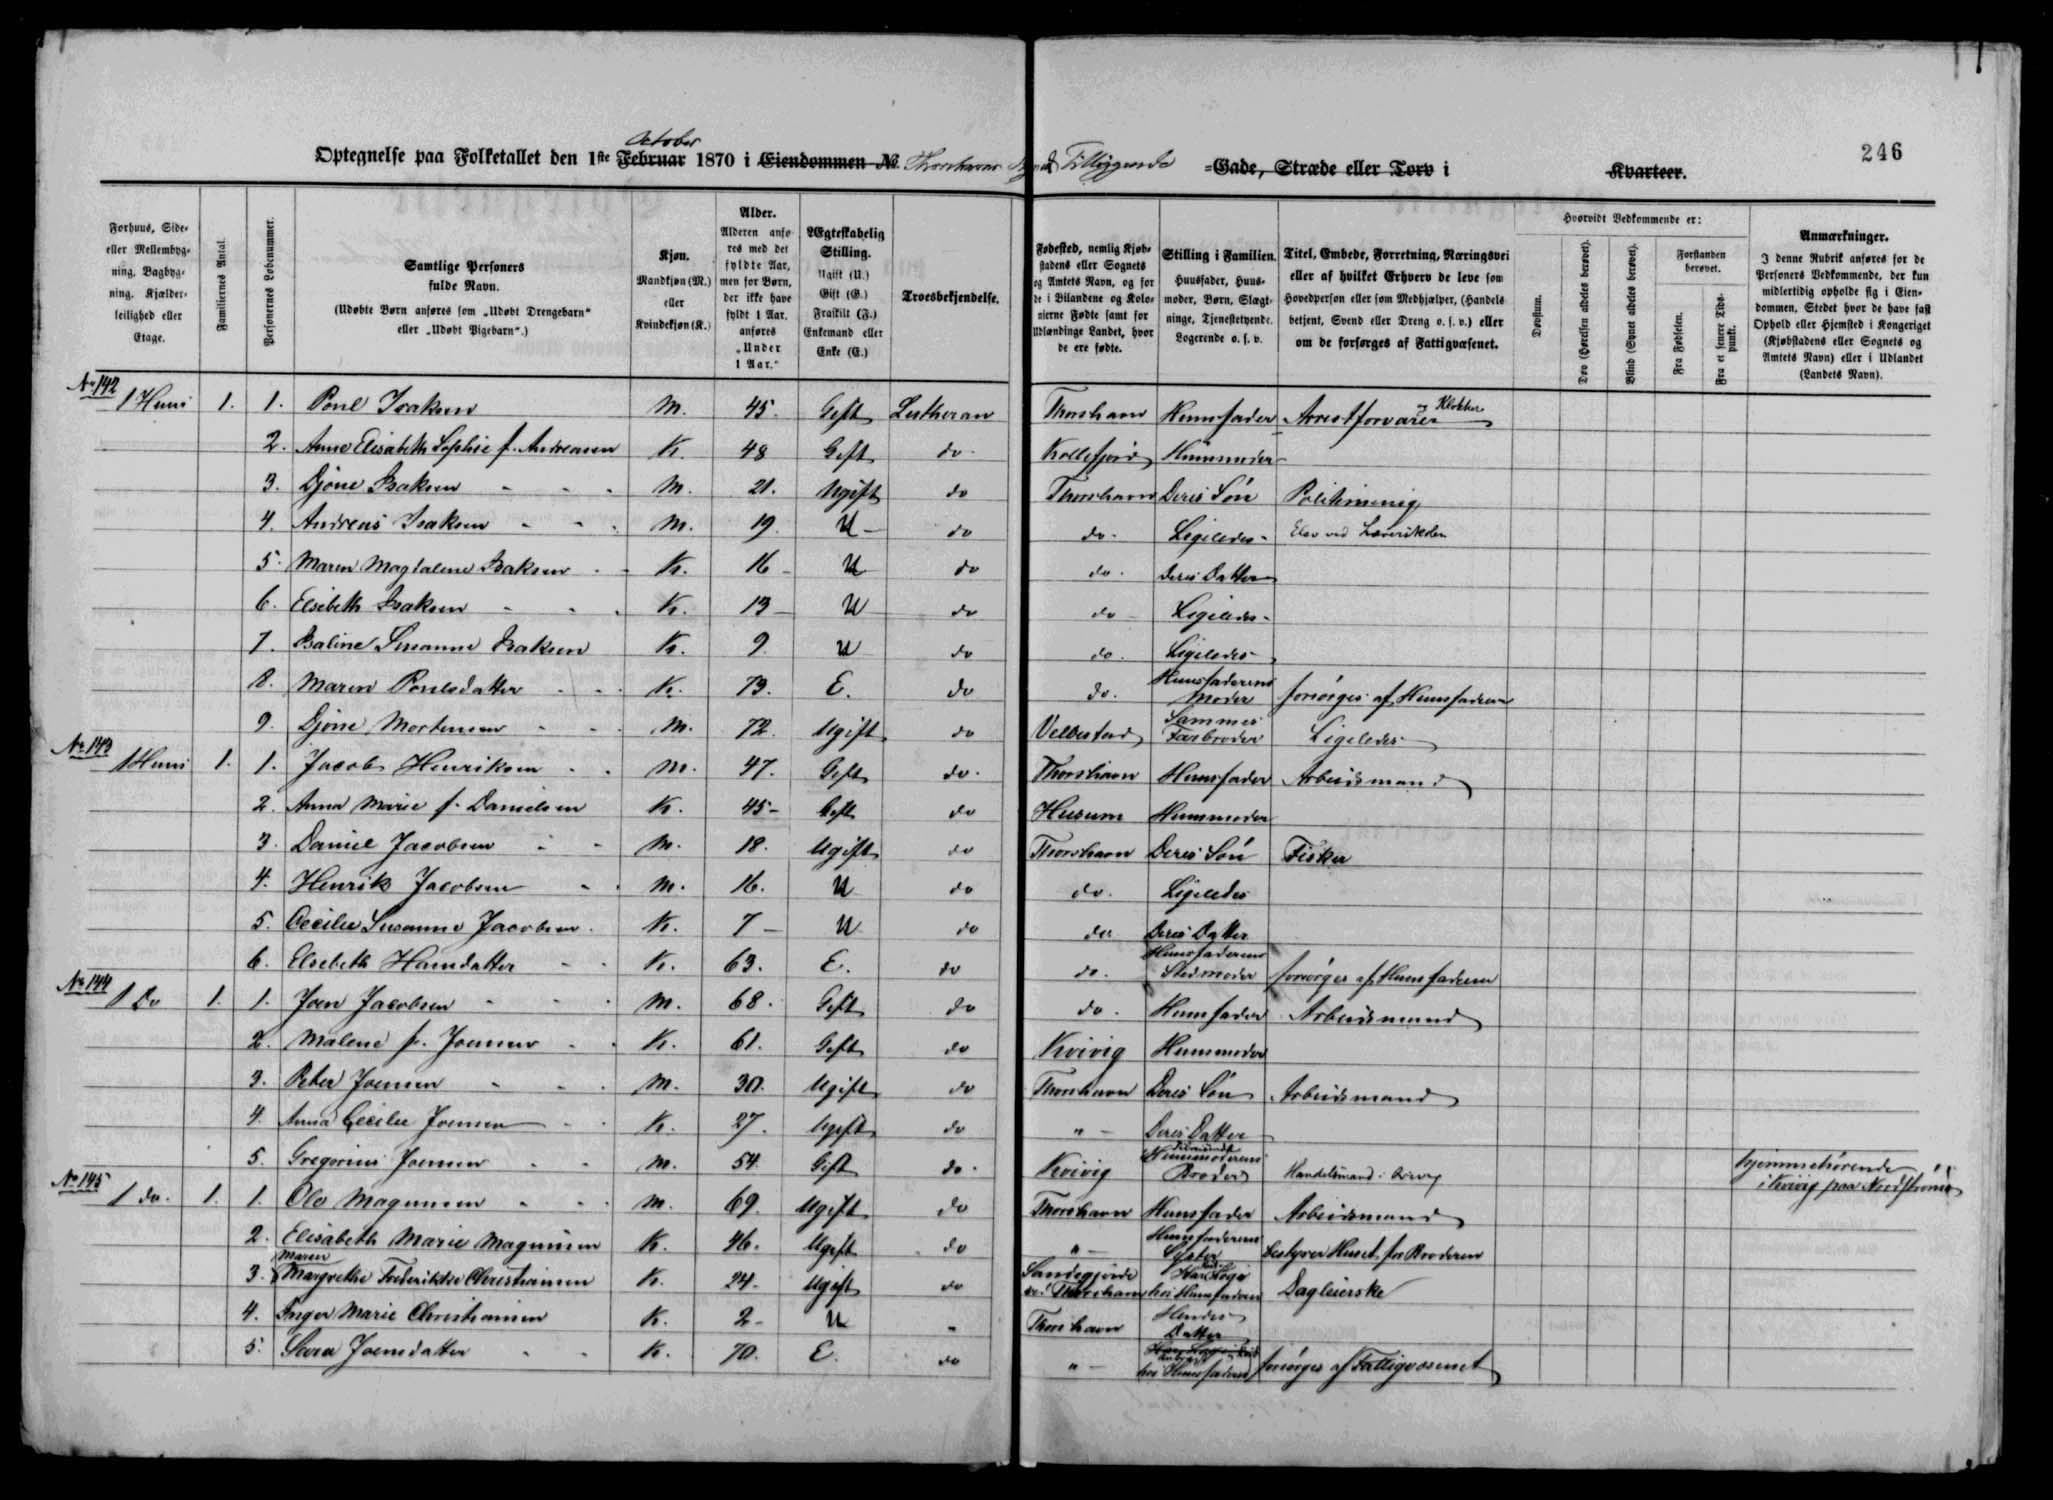 246
October
Optegnelse paa Folketallet den 1ste Februar 1870 i Eiendommen No. Thorshavn Tilliggende =Gade, Stræde eller Torv i Kvarteer.
Forhuus, Side= eller Mellembyg= ning, Bagbyg= ning. Kjælder= leilighed eller Etage.
Familiernes Antal.
Personernes Løbenummer.
Samtlige Personers fulde Navn.
(Udøbte Børn anføres som „Udøbt Drengebarn“ eller „Udøbt Pigebarn“.)
Kjøn.
Mandkjøn (M.) eller Kvindekjøn (K.)
Alder.
Alderen anfø= res med det fyldte Aar, men for Børn, der ikke have fyldt 1 Aar, anføres „Under 1 Aar.“
Ægteskabelig Stilling.
Ugift (U.) Gift (G.) Fraskilt (F.) Enkemand eller Enke (E.)
Troesbekjendelse.
Fødested, nemlig Kjøb= stadens eller Sognets og Amtets Navn, og for de i Bilandene og Kolo= nierne Fødte samt for Udlændinge Landet, hvor de ere fødte.
Stilling i Familien.
Huusfader, Huus= moder, Børn, Slægt= ninge, Tjenestetyende, Logerende o. s. v.
Titel, Embede, Forretning, Næringsvei eller af hvilket Erhverv de leve som Hovedperson eller som Medhjælper, (Handels betjent, Svend eller Dreng o. s. v.) eller om de forsørges af Fattigvæsenet.
Hvorvidt Vedkommende er:
Døvstum.
Døv (Hørelsen aldeles berøvet).
Blind (Synet aldeles berøvet).
Forstanden berøvet.
Fra Fødselen.
Fra et senere Tids= punkt.
Anmærkninger.
I denne Rubrik anføres for de Personers Vedkommende, der kun midlertidig opholde sig i Eien= dommen, Stedet hvor de have fast Ophold eller Hjemsted i Kongeriget (Kjøbstadens eller Sognets og Amtets Navn) eller i Udlandet (Landets Navn).
No 142
1 Huus 1. 1. Poul Isaksen M. 45. Gift Lutheran Thorshavn Huusfader Arrestforvarer og Klokker
2. Anne Elisabeth Sophie f. Andreasen K. 48 Gift do. Kollefjord Huusmoder
3. Djóne Isaksen M. 21. Ugift do Thorshavn Deres Søn
4. Andreas Isaksen M. 19. U do do. Ligeledes Elev ved
5. Maren Magdalene Isaksen K. 16 U do do. Deres Datter
6. Elsebeth Isaksen K. 13 U do do Ligeledes
7. Isaline Susanne Isaksen K. 9 U do do. Ligeledes
8. Maren Poulsdatter K. 73. E. do do. Huusfaderens Moder forsørges af Huusfaderen
9. Djóne Mortensen M. 72. Ugift do Velbestad Sammes Farbroder Ligeledes
No 143
1 Huus 1. 1. Jacob Henriksen M. 47. Gift do. Thorshavn Huusfader Arbeidsmand
2. Anna Marie f. Danielsen K. 45 Gift do Husum Huusmoder
3. Daniel Jacobsen M. 18. Ugift do Thorshavn Deres Søn Fisker
4. Henrik Jacobsen M. 16. U do do. Ligeledes
5. Cecilie Susanne Jacobsen K. 7 U do do Deres Datter
6. Elsebeth Hansdatter K. 63. E. do do. Huusfaderens Stedmoder forsørges af Huusfaderen
No 144
1 Do 1. 1. Joen Jacobsen M. 68. Gift do do. Huusfader Arbeidsmand
2. Malene f. Joensen K. 61. Gift do Kvivig Huusmoder
3. Peter Joensen M. 30. Ugift do Thorshavn Deres Søn Arbeidsmand
4. Anna Cecilie Joensen K. 27. Ugift do " Deres Datter
5. Gregorius Joensen M. 54. Gift do. Kvivig Huusmoderens Broder Handelsmand i hjemmehørende i Kvivig paa Nordstrømø
No 145
1 do. 1. 1. Ole Magnussen M. 69. Ugift do Thorshavn Huusfader Arbeidsmand
2. Elisabeth Marie Magnussen K. 46. Ugift do " Huusfaderens Søster bestyrer Huset for Broderen
3. Maren Margrethe Frederikke Christiansen K. 24 Ugift do Sandegjerde ved Thorshavn Har Logi hos Huusfaderen Dagleierske
4. Inger Marie Christiansen K. 2 U " Thorshavn Hendes Datter
5. Sara Joensdatter K. 70. E. do " hos Huusfaderen forsørges af Fattigvæsenet